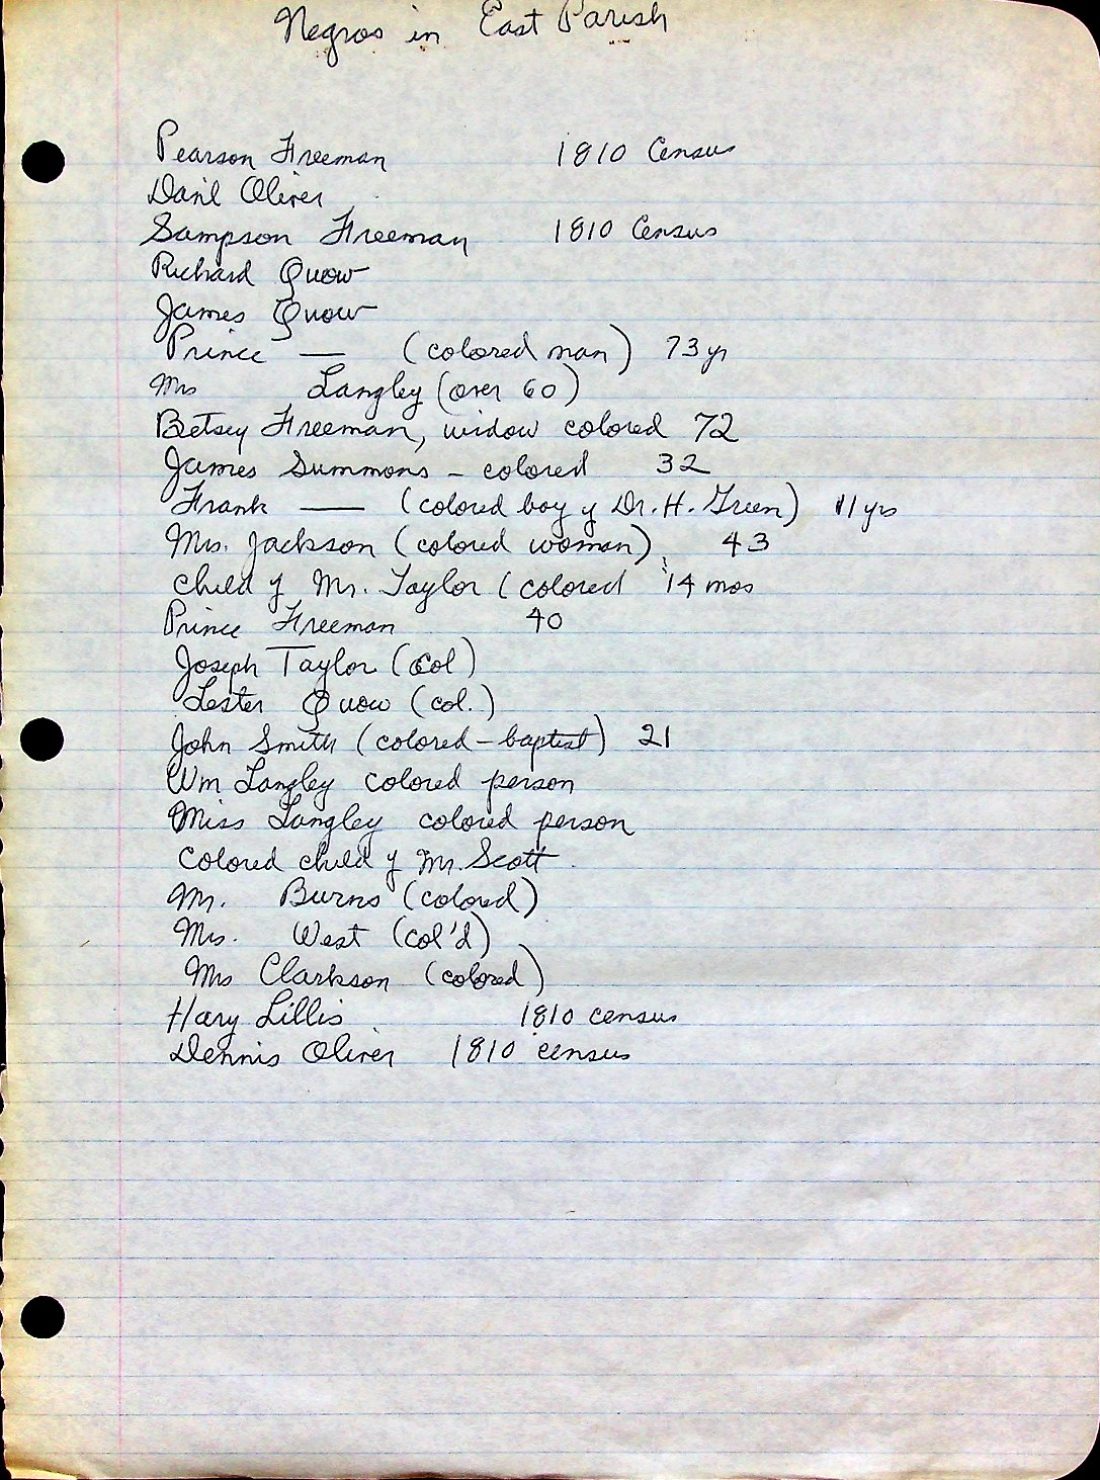 Negros in East Parish
Pearson Freeman 1810 Census
Danl Oliver
Sampson Freeman 1810 Census
Richard Quow
James Quow
Prince — (colored man) 73 yr
Mrs Langley (over 60)
Betsey Freeman, widow colored 72
James Summons - colored 32
Frank — (colored boy of Dr. H. Green) 11 yrs
Mrs. Jackson (colored woman) 43
child of Mr. Taylor (colored 14 mos
Prince Freeman 40
Joseph Taylor (col)
Lester Quow (col.)
John Smith (colored - baptist) 21
Wm Langley colored person
Miss Langley colored person
Colored child of Mr. Scott
Mr. Burns (colored)
Mrs. West (col'd)
Mrs Clarkson (colored)
Hary Lillis 1810 census
Dennis Oliver 1810 census